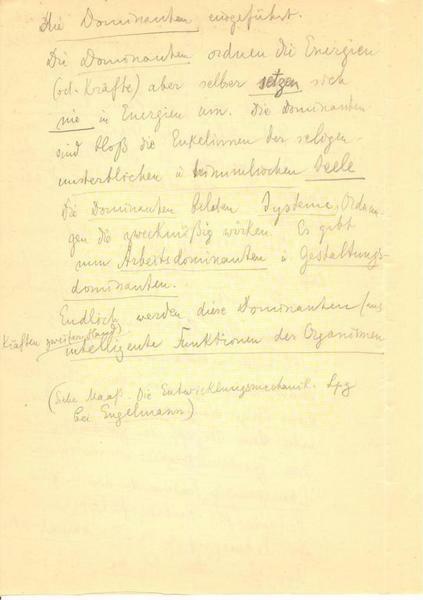 die Dominanten eingeführt.
Die Dominanten ordnen die Energien
(od. Kräfte) aber selber setzen sich
nie in Energien um. Die Dominanten
sind bloß die Enkelinnen der seligen
unsterblichen u himmlischen Seele
Die Dominanten beleben Systeme, Ordnun-
gen die zweckmäßig wirken. Es gibt
nun Arbeitsdominanten u Gestaltungs-
dominanten.
Endlich werden diese Dominanten (aus
Kräften zweiter Hand)
intelligente Funktionen des Organismen
(Siehe Maaß. Die Entwicklungsmechanik. Lpg
bei Engelmann)